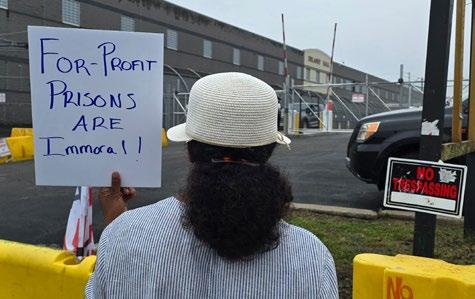 For-Profit
Prisons
are
Immoral!
DELANEY HALL
NO
TRESPASSING
NO